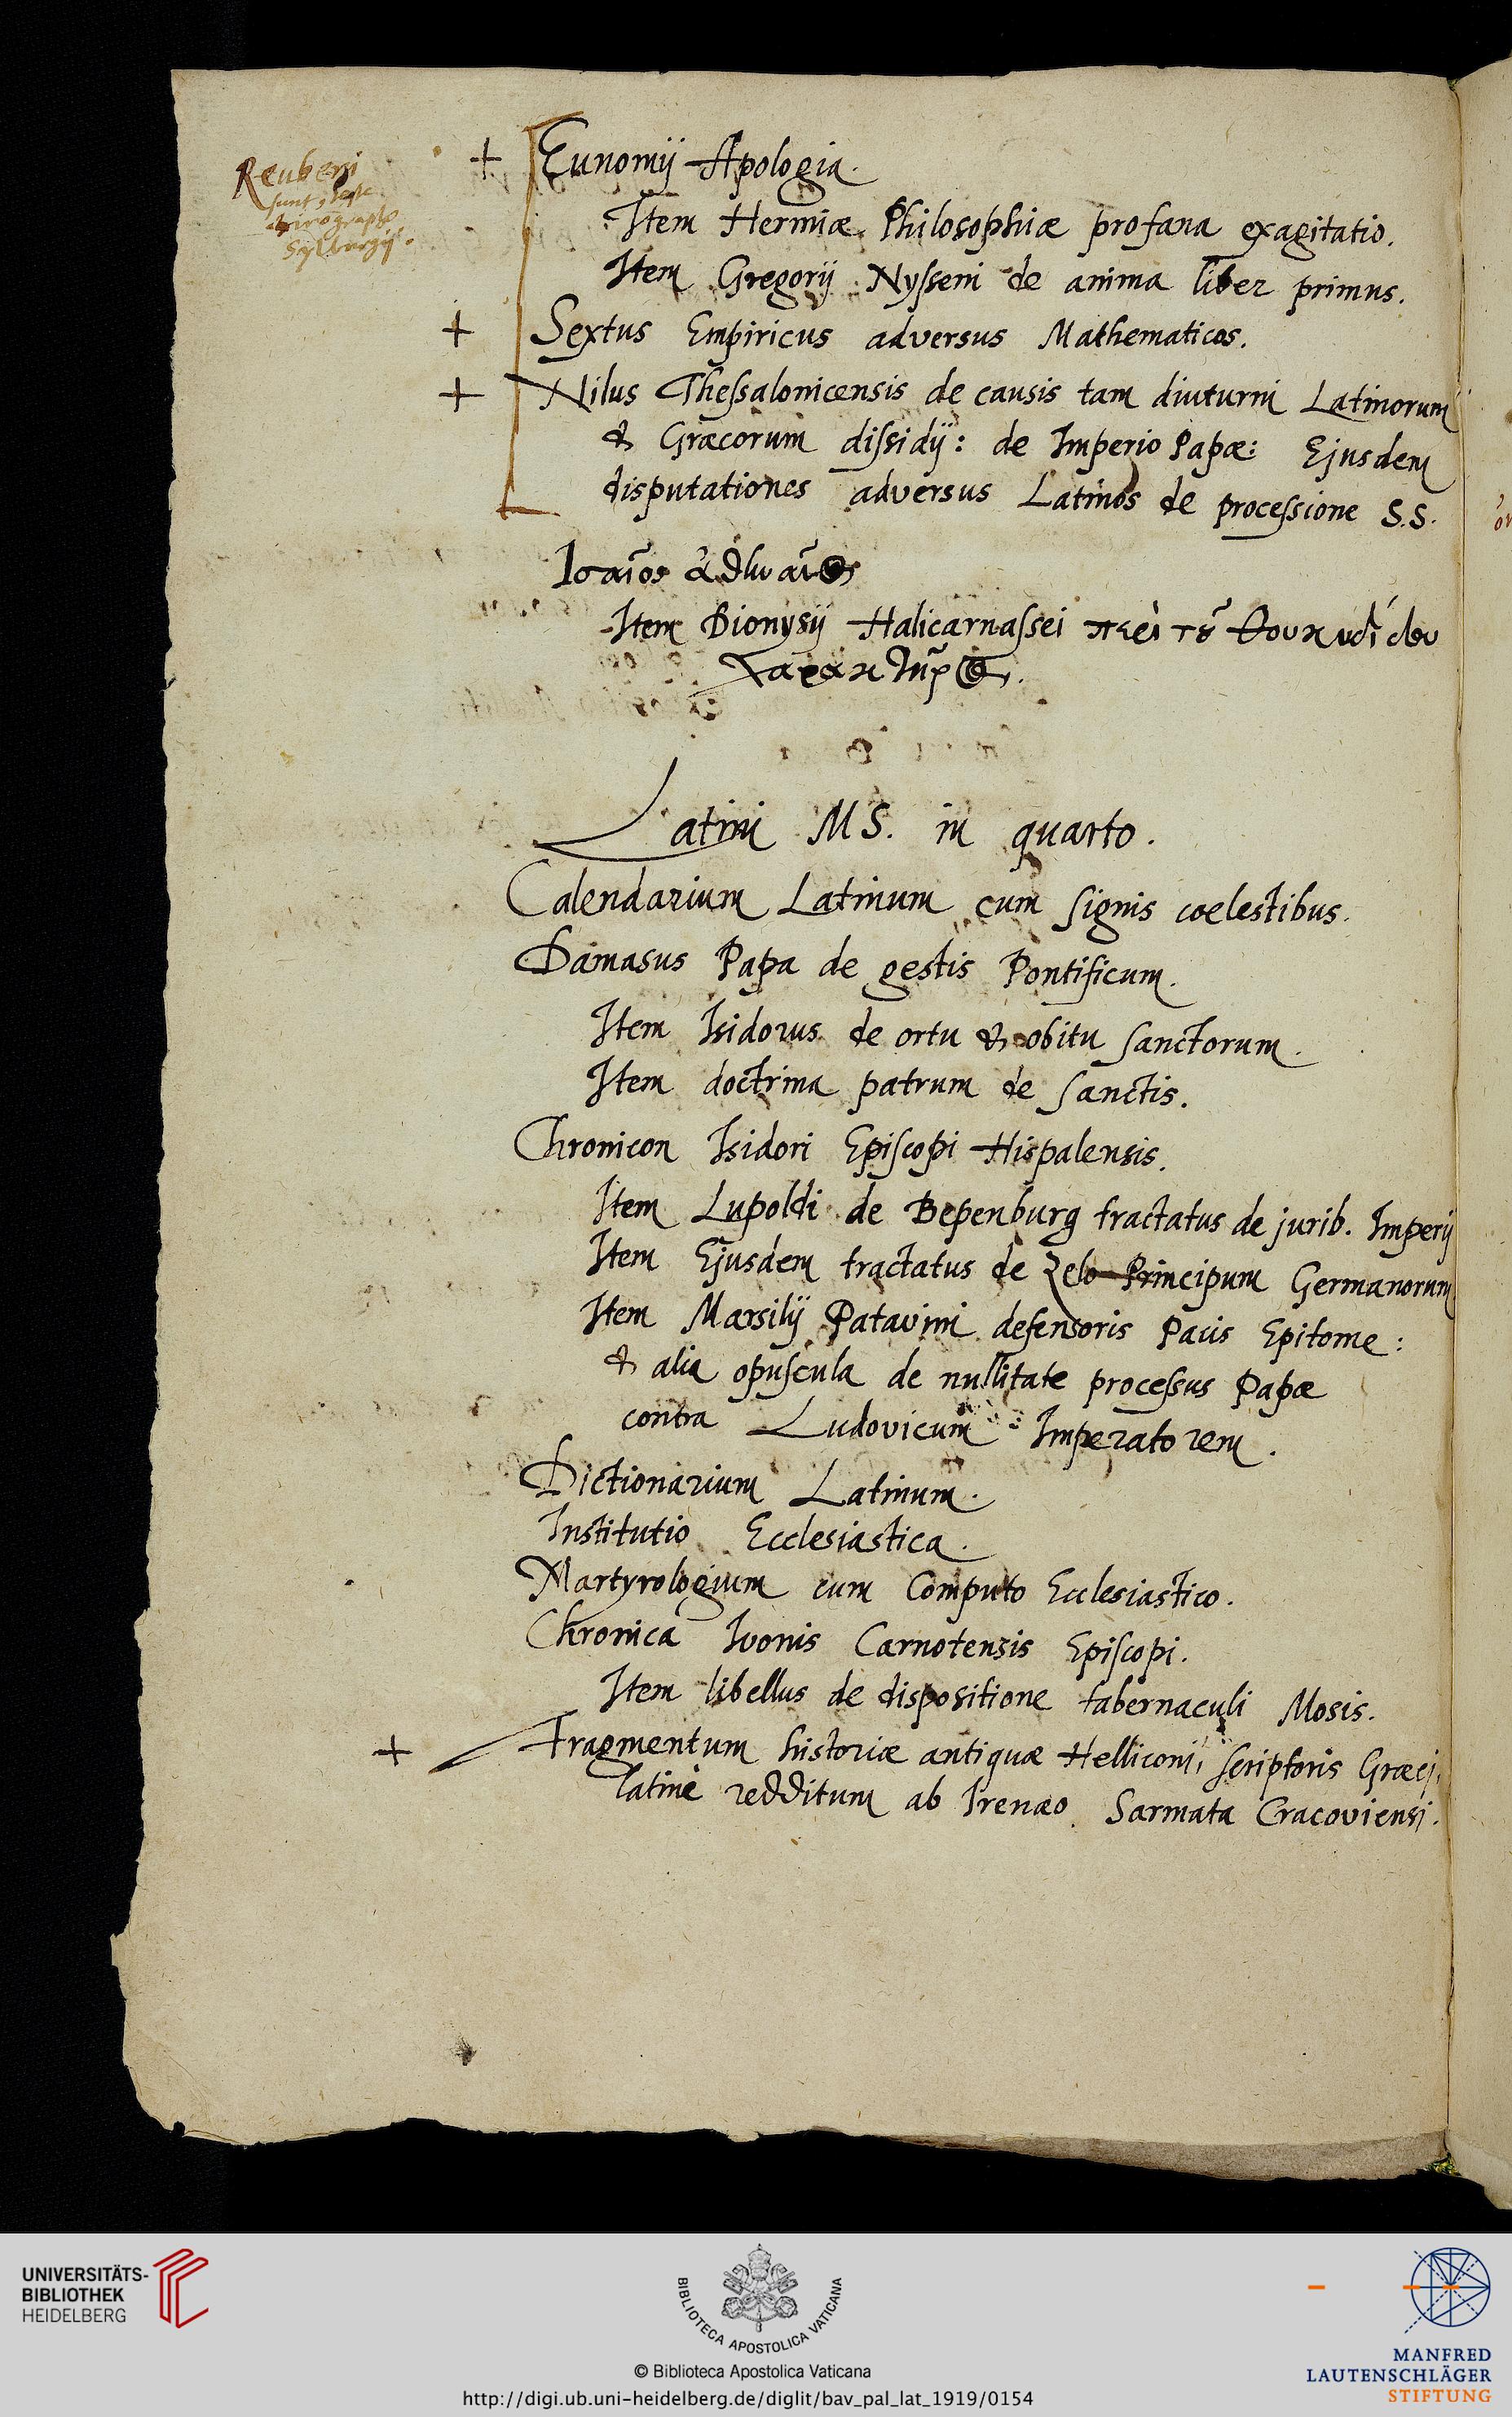 Reuberi
sunt, teste
chirographo
Sylburgij.
+ Eunomij Apologia.
Item Hermiæ Philosophiæ profana exagitatio.
Item Gregorij Nysseni de anima liber primus.
+ Sextus Empiricus adversus Mathematicos.
+ Nilus Thessalonicensis de causis tam diuturni Latinorum
& Græcorum dissidij: de Imperio Papæ: Ejusdem
disputationes adversus Latinos de processione S.S.
Item Dionysij Halicarnassei περὶ τοῦ Θουκυδίδου
χαρακτῆρος.
Latini MS. in quarto.
Calendarium Latinum cum signis coelestibus.
Damasus Papa de gestis Pontificum.
Item Isidorus de ortu & obitu sanctorum.
Item doctrina patrum de sanctis.
Chronicon Isidori Episcopi Hispalensis.
Item Lupoldi de Bepenburg tractatus de jurib. Imperij
Item Ejusdem tractatus de zelo Principum Germanorum
Item Marsilij Patavini defensoris Pacis Epitome:
& alia opuscula de nullitate processus Papæ
contra Ludovicum Imperatorem.
Dictionarium Latinum.
Institutio Ecclesiastica.
Martyrologium cum Computo Ecclesiastico.
Chronica Ivonis Carnotensis Episcopi.
Item libellus de dispositione tabernaculi Mosis.
+ Fragmentum historiæ antiquæ Helliconi, scriptoris Græci,
latinè redditum ab Irenæo Sarmata Cracoviensi.
UNIVERSITÄTS-
BIBLIOTHEK
HEIDELBERG
BIBLIOTECA APOSTOLICA VATICANA
© Biblioteca Apostolica Vaticana
http://digi.ub.uni-heidelberg.de/diglit/bav_pal_lat_1919/0154
MANFRED
LAUTENSCHLÄGER
STIFTUNG